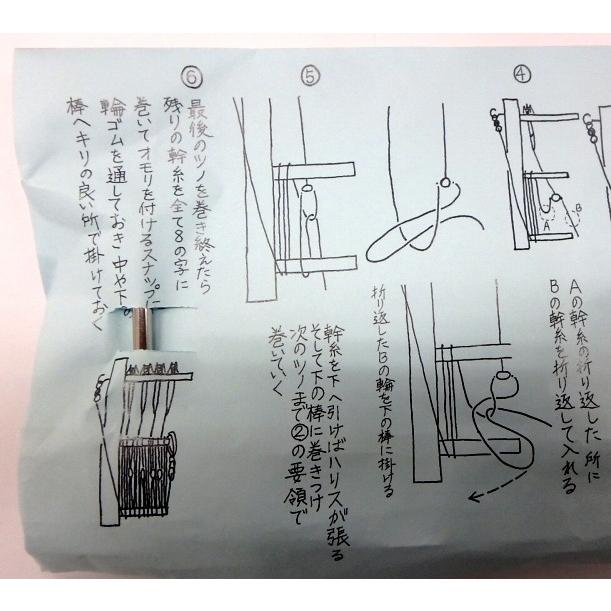 ④
A
B
Aの幹糸の折り返した所に
Bの幹糸を折り返して入れる
折り返したBの輪を下の棒に掛ける
⑤
幹糸を下へ引けばハリスが張る
そして下の棒に巻きつけ
次のツノまで②の要領で
巻いていく
⑥
最後のツノを巻き終えたら
残りの幹糸を全て8の字に
巻いてオモリを付けるスナップに
輪ゴムを通しておき中や下の
棒へキリの良い所で掛けておく